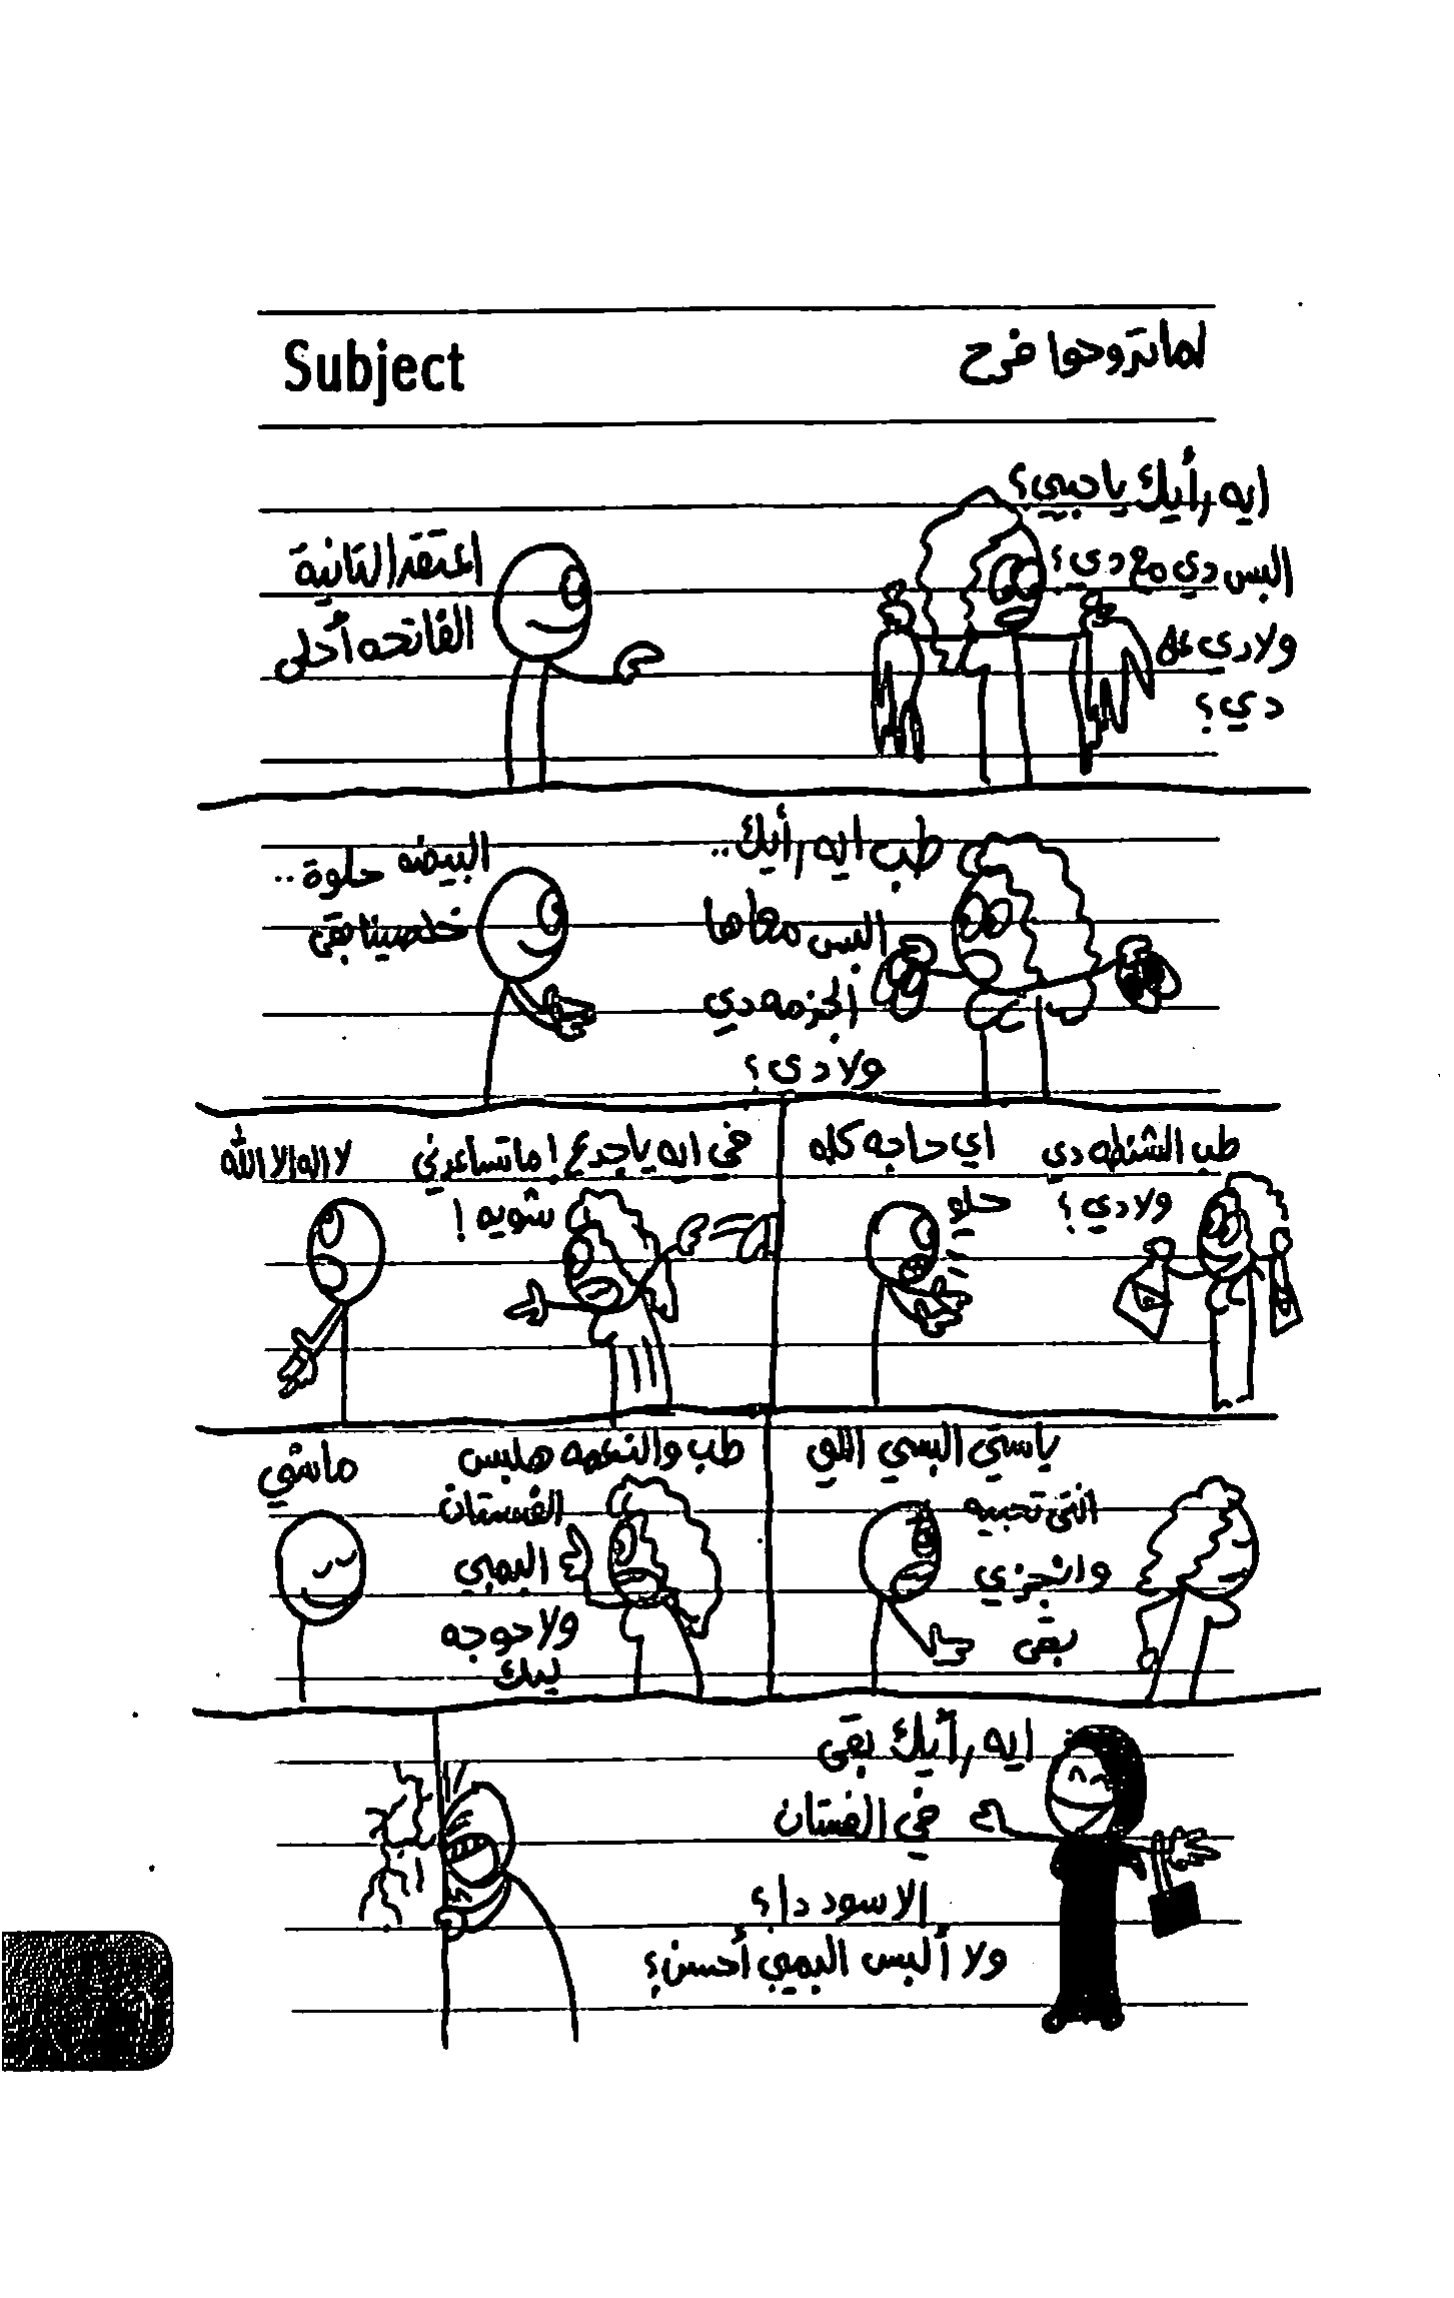 Subject
لما تروحوا فرح
ايه رأيك يا حبيبي؟
البس دي مع دي؟
ولا دي علا
دي؟
اعتقد التانية
الفاتحه أحلى
طب ايه رأيك..
البس معاها
الجزمه دي
ولا دي؟
البيضه حلوة..
خلصينا بقى
طب الشنطه دي
ولا دي؟
اي حاجه كله
حلو
في ايه يا جدع! ما تساعدني
شويه!
لا اله الا الله
ياستي البسي اللي
انتي تحبيه
وانجزي
بقى
طب والنعمه هلبس
الفستان
البمبي
ولا حوجه
ليك
ماشي
ايه رأيك بقى
في الفستان
الاسود دا؟
ولا ألبس البمبي أحسن؟